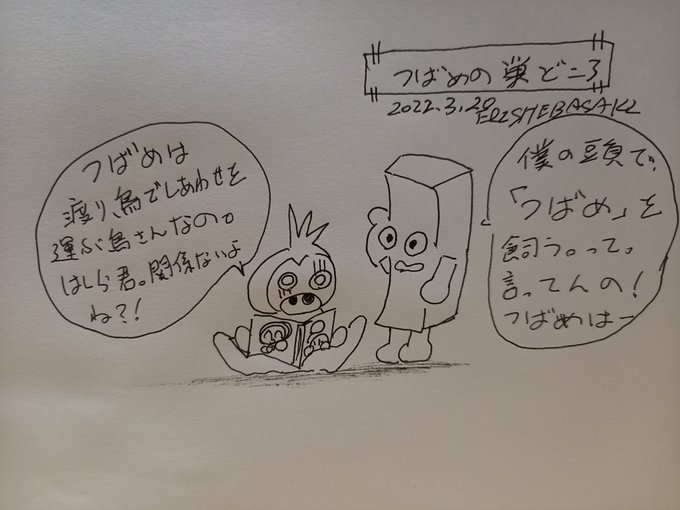 つばめの巣どころ
2022.3.20
ERISHEBASAKI
つばめは
渡り、鳥でしあわせを
運ぶ鳥さんなの。
はしら君。関係ないよ
ね?!
僕の頭で。
「つばめ」を
飼う。って。
言ってんの!
つばめはー